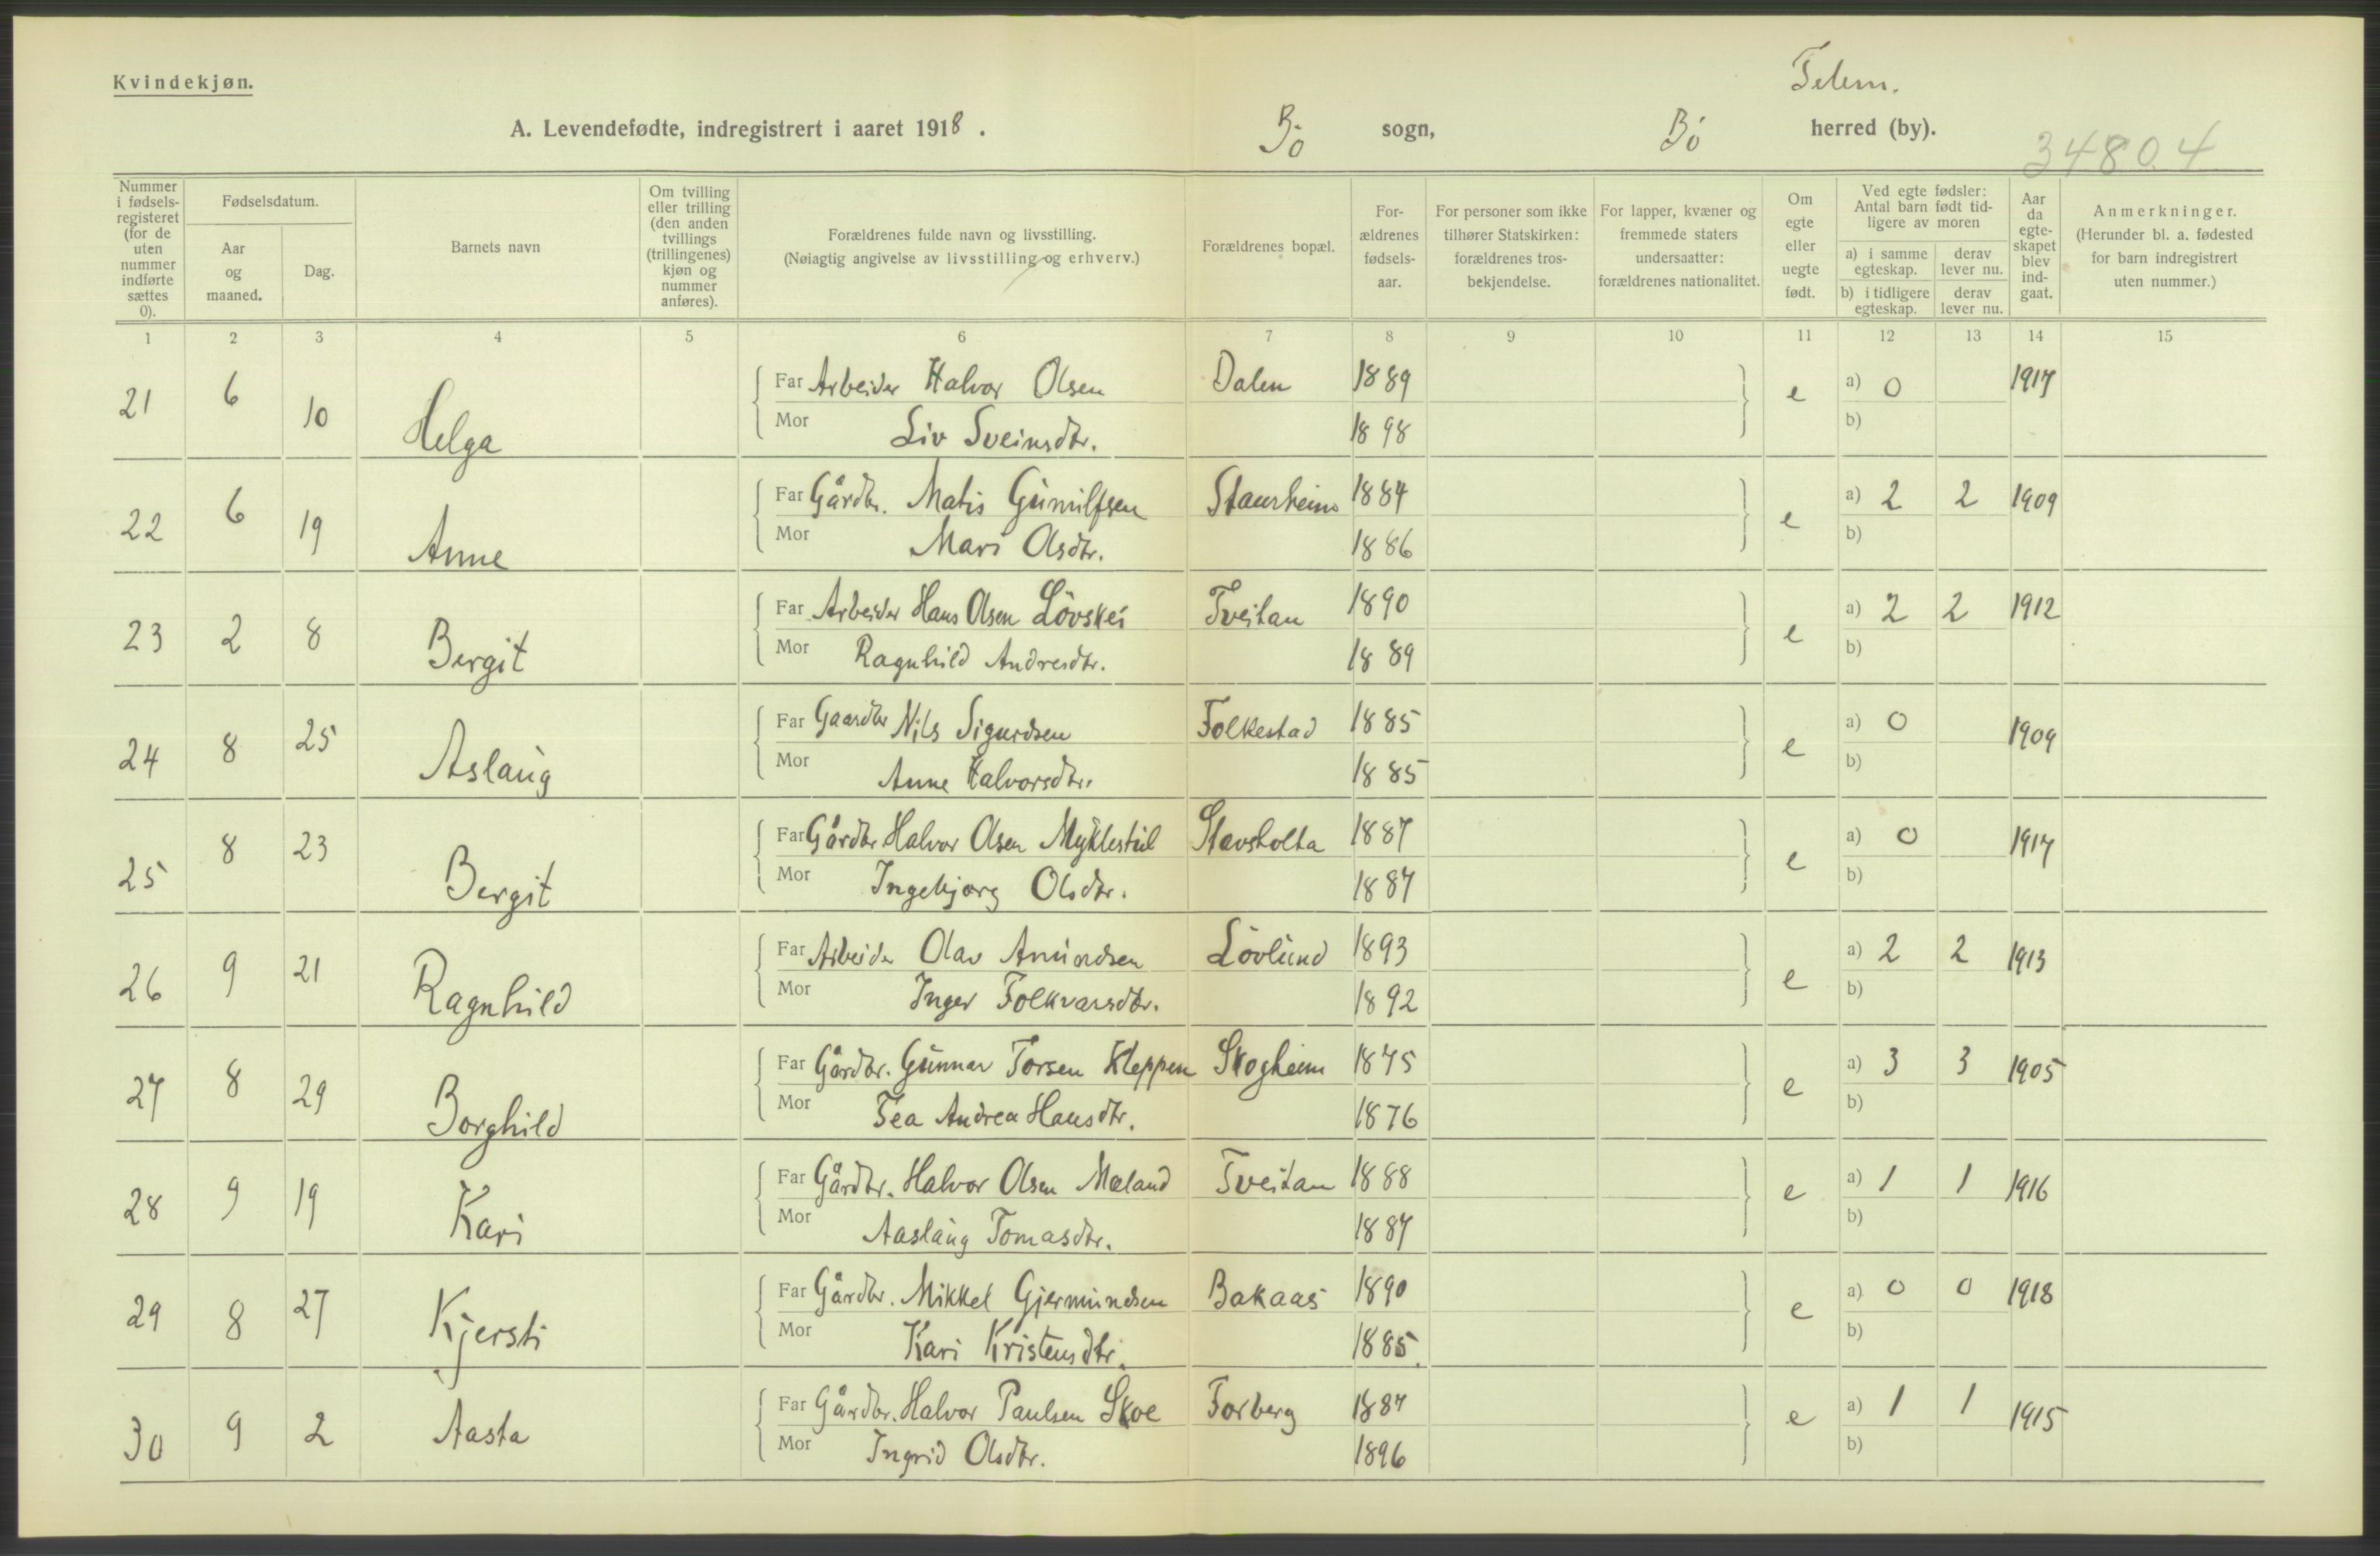 Kvindekjøn.
Telem.
A. Levendefødte, indregistrert i aaret 1918. Bö sogn, Bö herred (by).
34804
Nummer i fødsels-registeret (for de uten nummer indførte sættes 0).
Fødselsdatum.
Aar og maaned.
Dag.
Barnets navn
Om tvilling eller trilling (den anden tvillings (trillingenes) kjøn og nummer anføres).
Forældrenes fulde navn og livsstilling.
(Nøiagtig angivelse av livsstilling og erhverv.)
Forældrenes bopæl.
For-ældrenes fødsels-aar.
For personer som ikke tilhører Statskirken: forældrenes tros-bekjendelse.
For lapper, kvæner og fremmede staters undersaatter: forældrenes nationalitet.
Om egte eller uegte født.
Ved egte fødsler: Antal barn født tid-ligere av moren
a) i samme egteskap.
derav lever nu.
b) i tidligere egteskap.
derav lever nu.
Aar da egte-skapet blev ind-gaat.
Anmerkninger.
(Herunder bl. a. fødested for barn indregistrert uten nummer.)
1 2 3 4 5 6 7 8 9 10 11 12 13 14 15
21 6 10 Helga Far Arbeider Halvor Olsen Dalen 1889 e a) 0 1917
Mor Liv Sveinsdtr. 1898 b)
22 6 19 Anne Far Gårdbr. Matis Gunnulfsen Staursheim 1884 e a) 2 2 1909
Mor Mari Olsdtr. 1886 b)
23 2 8 Bergit Far Arbeider Hans Olsen Lövskei Tveitan 1890 e a) 2 2 1912
Mor Ragnhild Andresdtr. 1889 b)
24 8 25 Aslaug Far Gaardbr Nils Sigurdsen Folkestad 1885 e a) 0 1909
Mor Anne Halvorsdtr. 1885 b)
25 8 23 Bergit Far Gårdbr Halvor Olsen Myklestul Stavsholta 1887 e a) 0 1917
Mor Ingebjørg Olsdtr. 1887 b)
26 9 21 Ragnhild Far Arbeider Olav Amundsen Lövlund 1893 e a) 2 2 1913
Mor Inger Folkvarsdtr. 1892 b)
27 8 29 Borghild Far Gårdbr. Gunnar Torsen Kleppen Skogheim 1875 e a) 3 3 1905
Mor Tea Andrea Hansdtr. 1876 b)
28 9 19 Kari Far Gårdbr. Halvor Olsen Mæland Tveitan 1888 e a) 1 1 1916
Mor Aaslaug Tomasdtr. 1887 b)
29 8 27 Kjersti Far Gårdbr. Mikkel Gjermundsen Bakaas 1890 e a) 0 0 1918
Mor Kari Kristensdtr. 1885. b)
30 9 2 Aasta Far Gårdbr. Halvor Paulsen Skoe Forberg 1887 e a) 1 1 1915
Mor Ingrid Olsdtr. 1896 b)